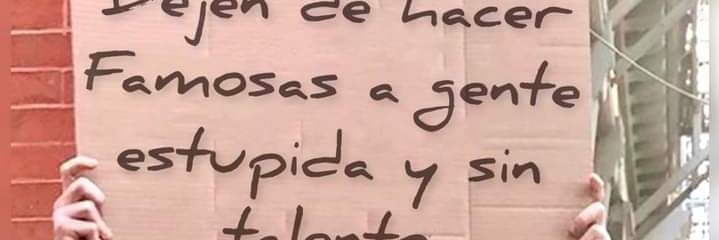 Dejen de hacer
Famosas a gente
estupida y sin
talento